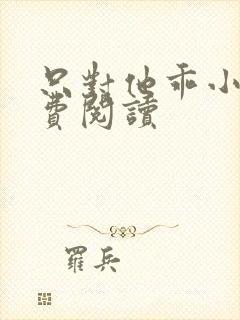 只對他乖小
費閱讀
羅兵